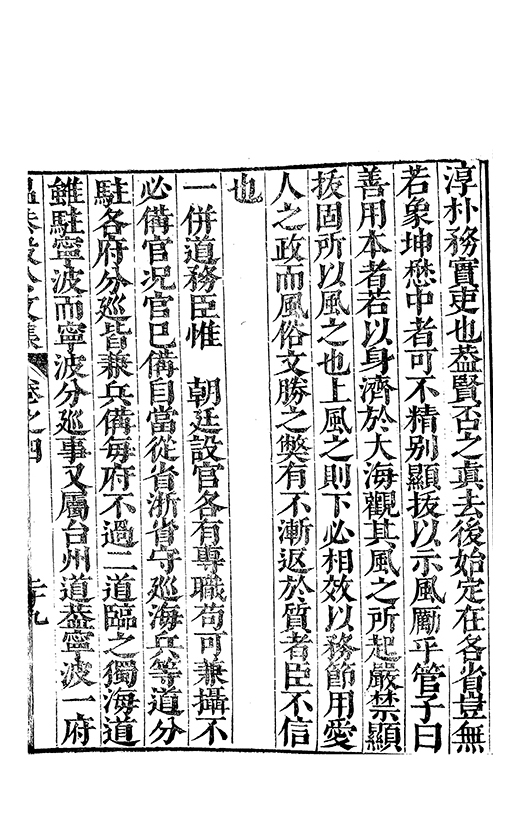 淳朴務實吏也葢賢否之眞去後始定在各省豈無
若象坤懋中者可不精别顯拔以示風勵乎管子曰
善用本者若以身濟於大海觀其風之所起嚴禁顯
拔固所以風之也上風之則下必相效以務節用愛
人之政而風俗文勝之弊有不漸返於質者臣不信
也
一併道務臣惟　朝廷設官各有專職苟可兼攝不
必備官况官巳備自當從省浙省守廵海兵等道分
駐各府分廵皆兼兵備每府不過二道臨之獨海道
雖駐寧波而寧波分廵事又屬台州道葢寧波一府
溫恭毅公文集　卷之四　　十九